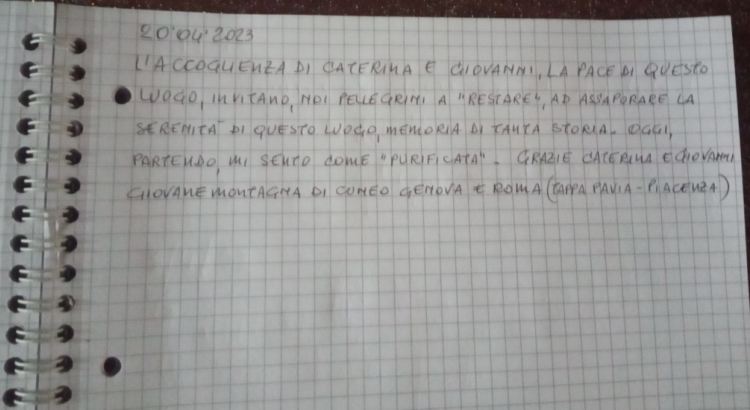 20·04·2023
L'ACCOGLIENZA DI CATERINA E GIOVANNI, LA PACE DI QUESTO
LUOGO, INVITANO, NOI PELLEGRINI A "RESTARE", AD ASSAPORARE LA
SERENITA' DI QUESTO LUOGO, MEMORIA DI TANTA STORIA. OGGI,
PARTENDO, MI SENTO COME "PURIFICATA". GRAZIE CATERINA E GIOVANNI
GIOVANE MONTAGNA DI CUNEO GENOVA E ROMA (TAPPA PAVIA-PIACENZA)